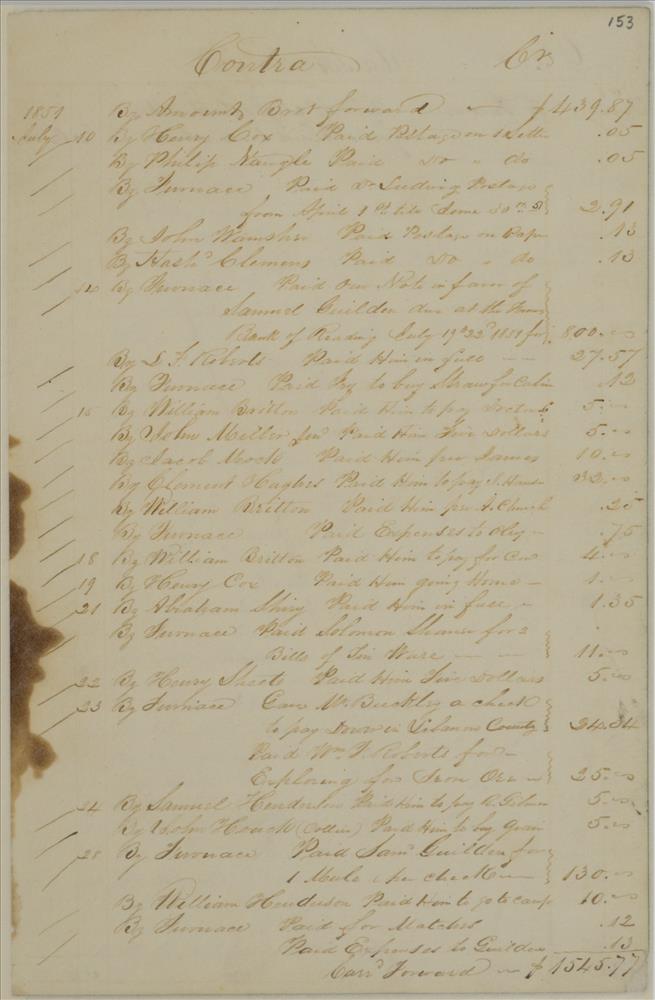 153
Contra Cr.
1851 By Amount Brot forward $439.87
July 10 By Henry Cox Paid Postage on 1 Letter .05
By Philip Nangle Paid do " do .05
By Furnace Paid Dr Ludwig Postage
from April 1st till June 30th 51 2.91
By John Wamsher Paid Postage on Paper .13
By Clemens Paid do " do .13
14 By Furnace Paid Our Note in favor of
Samuel Guilden due at the Farm
Bank of Reading July 19th 22d 1851 for 800.00
By L. F. Roberts Paid Him in full 27.57
By Furnace Paid to buy Straw for Cabin .12
15 By William Britton Paid Him to pay Doctor 5.00
By John Miller Jnr Paid Him Five Dollars 5.00
By Jacob Mock Paid Him per James 10.00
By Clement Hughes Paid Him to pay 32.00
By William Britton Paid Him per A. Church .25
By Furnace Paid Expenses to Oley .75
18 By William Britton Paid Him to pay for Cow 4.00
19 By Henry Cox Paid Him going Home 1.00
21 By Abraham Shiry Paid Him in full 1.35
By Furnace Paid Solomon for 2
Bills of Tin Ware 11.00
22 By Henry Sheets Paid Him Five Dollars 5.00
23 By Furnace Gave Mr. Buckley a check
to pay Down in Lebanon County 24.34
Paid Wm F. Roberts for
Exploring for Iron Ore 25.00
24 By Samuel Henderson Paid Him to pay 5.00
By John Houck (Collier) Paid Him to buy Grain 5.00
28 By Furnace Paid Saml Guilden for
1 Mule per check 130.00
By William Henderson Paid Him to go to camp 10.00
By Furnace Paid for Matches .12
Paid Expenses to Guilden .13
Carrd Forward $1545.77